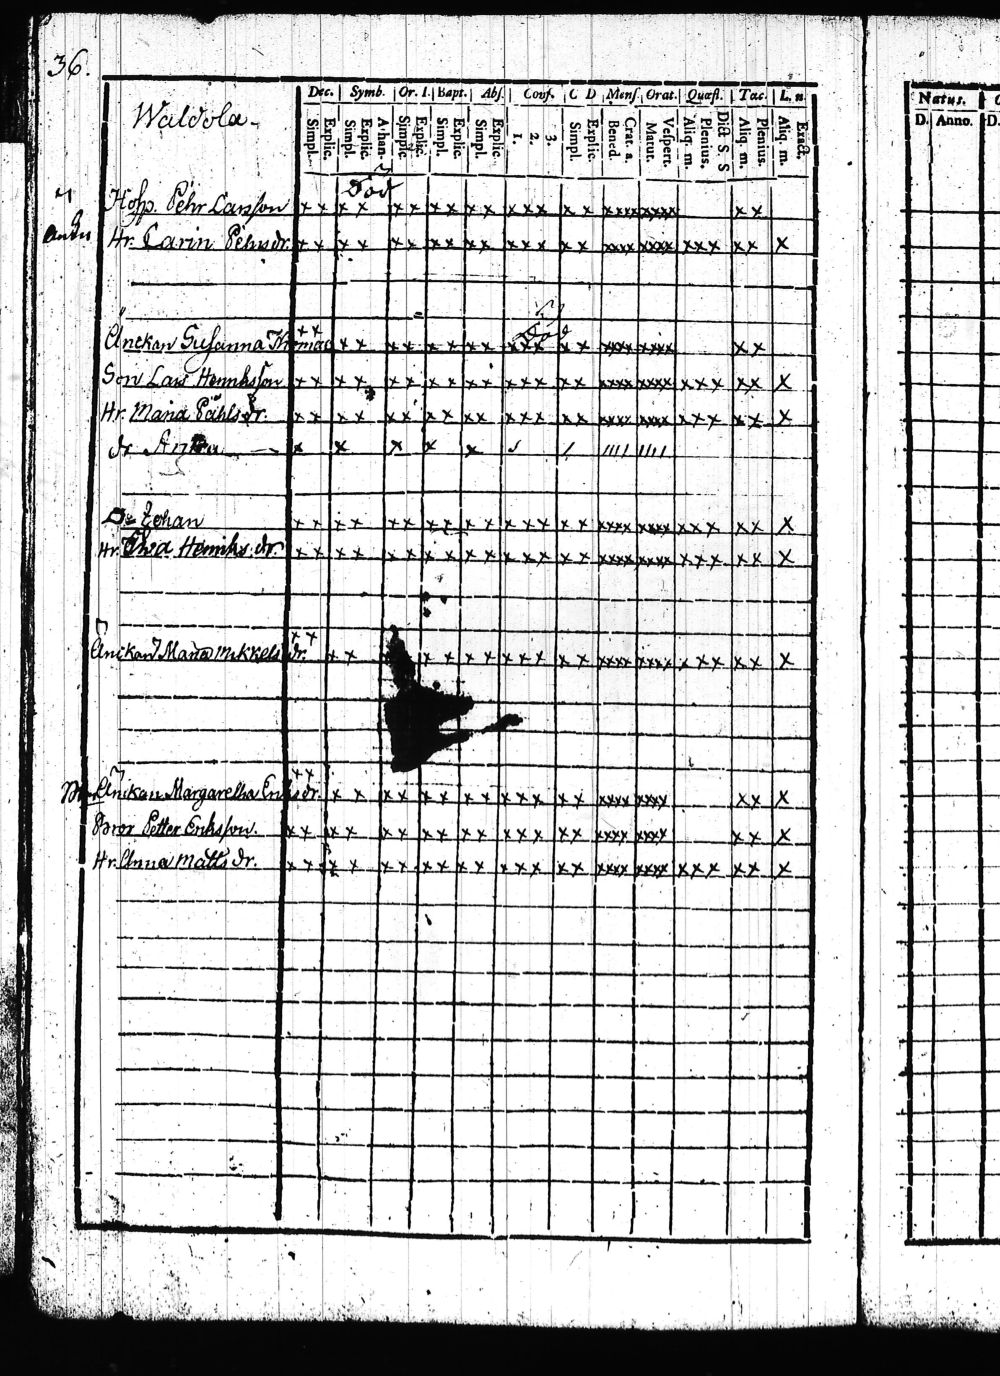 36.
Dec. Symb. Or. I. Bapt. Abs. Conf. C D Mens. Orat. Quæst. Tac. L. n.
Waldola
Simpl. Explic. Simpl. Explic. Athan. Simplic. Explic. Simpl. Explic. Simpl. Explic. 1. 2. 3. Simpl. Explic. Bened. Grat. a. Matut. Vespert. Aliq. m. Plenius. Dict. S. S Aliq. m. Plenius. Aliq. m. Exact.
Död
Hosp. Pehr Larsson x x x x x x x x x x x x x x x xxxx xxxx x x
Hr. Carin Pehrsdr. x x x x x x x x x x x x x x x xxxx xxxx x x x x x x
Död
Änckan Susanna Thomas x x x x x x x x x x x x x x x xxxx xxxx x x
Son Lars Henriksson x x x x x x x x x x x x x x x xxxx xxxx x x x x x x
Hr. Maria Påhls dr. x x x x x x x x x x x x x x x xxxx xxxx x x x x x x
dr x x x x x / / //// ////
Johan x x x x x x x x x x x x x x x xxxx xxxx x x x x x x
Hr. Ewa Henriks dr. x x x x x x x x x x x x x x x xxxx xxxx x x x x x x
Änckan Maria Mickels dr. x x x x x x x x x x x x x xxxx xxxx x x x x x x
Änckan Margaretha Eriks dr. x x x x x x x x x x x x x x x xxxx xxxx x x x
Bror Petter Eriksson. x x x x x x x x x x x x x x x xxxx xxxx x x x
Hr. Anna Matts dr. x x x x x x x x x x x x x x x xxxx xxxx x x x x x x
Natus.
D. Anno. D.